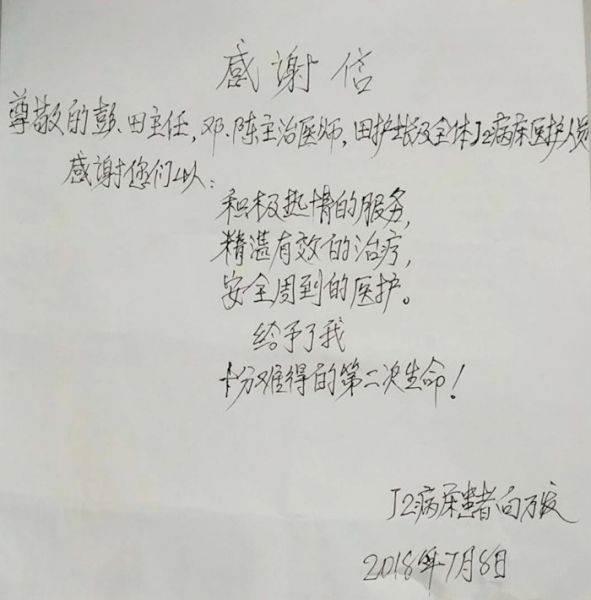 感谢信
尊敬的彭、田主任,邓、陈主治医师,田护士长及全体J2病床医护人员
感谢您们以:
积极热情的服务,
精湛有效的治疗,
安全周到的医护。
给予了我
十分难得的第二次生命!
J2病床患者向万
2018年7月8日